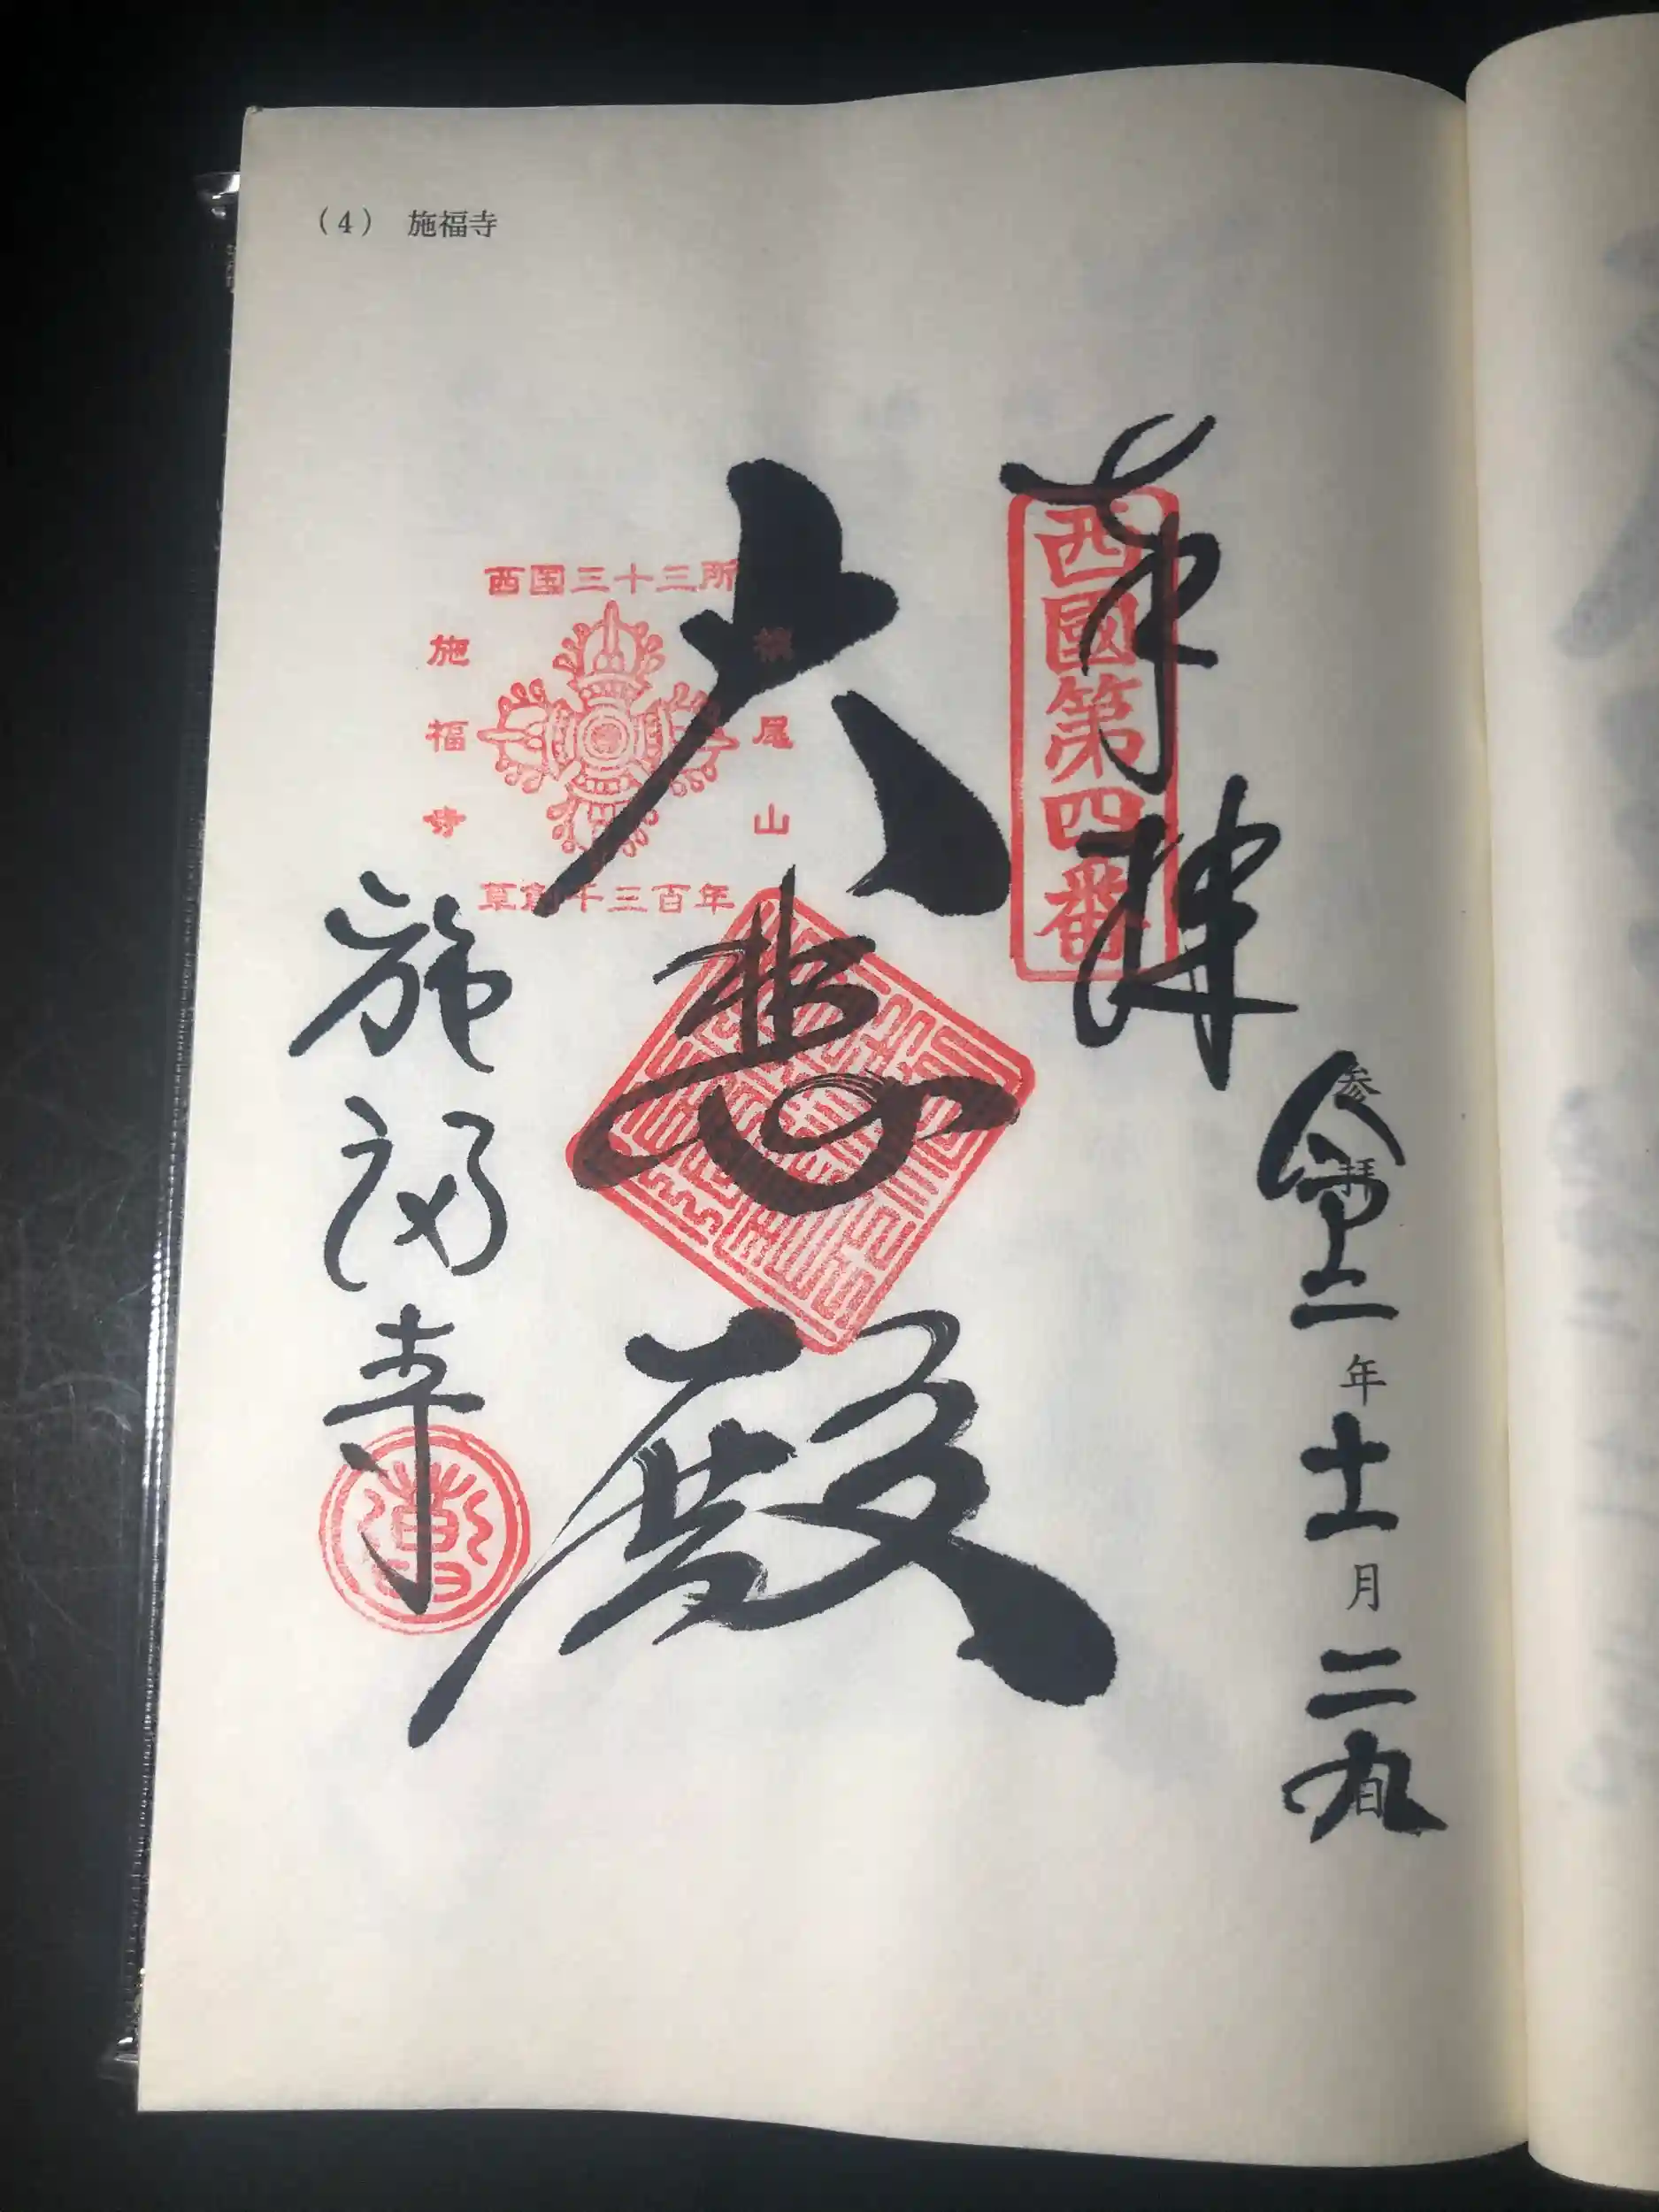 (4) 施福寺
奉拝
西國第四番
参拝
令和二年十一月二九日
大悲殿
西国三十三所
槇尾山
施福寺
草創千三百年
施福寺